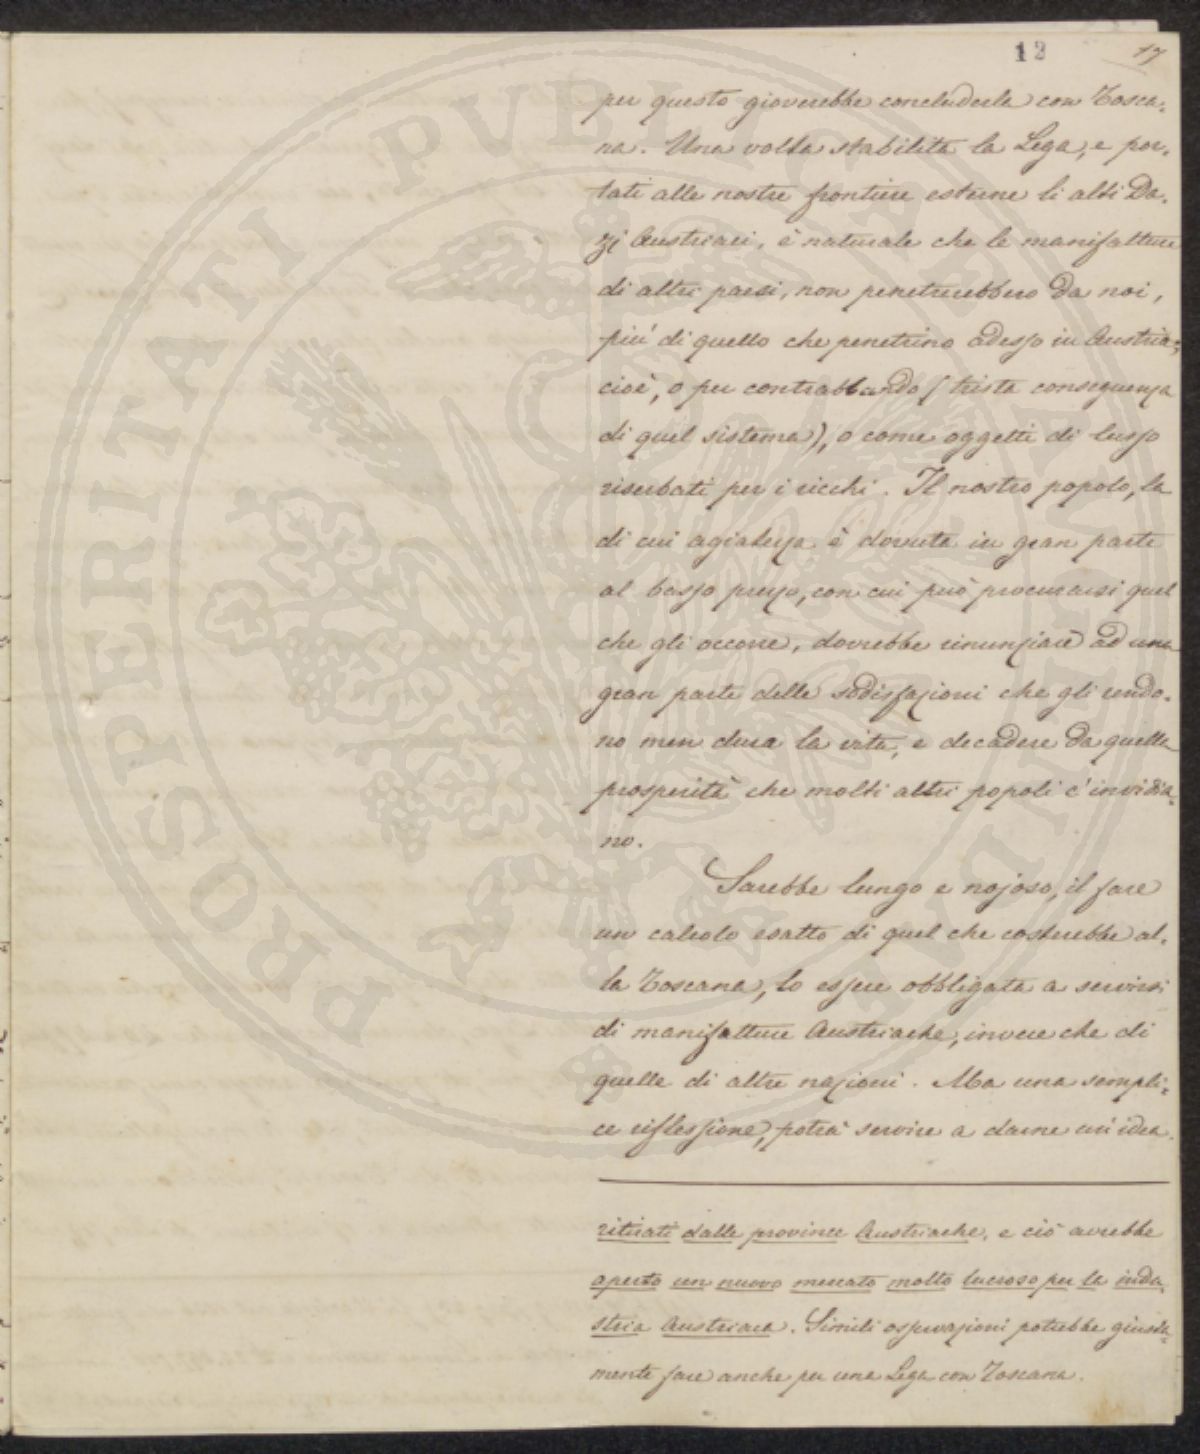 12 17
per questo gioverebbe concluderla con Tosca-
na. Una volta stabilita la Lega, e por-
tati alle nostre frontiere esterne li alti Da-
zj Austriaci, è naturale che le manifatture
di altri paesi, non penetrerebbero da noi,
più di quello che penetrino adesso in Austria;
cioè, o per contrabbando (trista conseguenza
di quel sistema), o come oggetti di lusso
riserbati per i ricchi. Il nostro popolo, la
di cui agiatezza è dovuta in gran parte
al basso prezzo, con cui può procurarsi quel
che gli occorre, dovrebbe rinunziare ad una
gran parte delle sodisfazioni che gli rendo-
no men dura la vita, e decadere da quella
prosperità che molti altri popoli c'invidia-
no.
Sarebbe lungo e nojoso, il fare
un calcolo esatto di quel che costerebbe al-
la Toscana, lo essere obbligata a servirsi
di manifatture Austriache, invece che di
quelle di altre nazioni. Ma una sempli-
ce riflessione, potrà servire a darne un'idea.
ritirati dalle province Austriache, e ciò avrebbe
aperto un nuovo mercato molto lucroso per la indu-
stria Austriaca. Simili osservazioni potrebbe giusta-
mente fare anche per una Lega con Toscana.
PROSPERITATI PUBLICAE